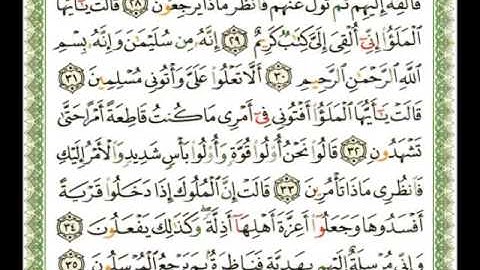 فَأَلْقِهْ إِلَيْهِمْ ثُمَّ تَوَلَّ عَنْهُمْ فَانظُرْ مَاذَا يَرْجِعُونَ ﴿٢٨﴾ قَالَتْ يَٰٓأَيُّهَا
ٱلْمَلَؤُا۟ إِنِّىٓ أُلْقِىَ إِلَىَّ كِتَٰبٌ كَرِيمٌ ﴿٢٩﴾ إِنَّهُۥ مِن سُلَيْمَٰنَ وَإِنَّهُۥ بِسْمِ
ٱللَّهِ ٱلرَّحْمَٰنِ ٱلرَّحِيمِ ﴿٣٠﴾ أَلَّا تَعْلُوا۟ عَلَىَّ وَأْتُونِى مُسْلِمِينَ ﴿٣١﴾
قَالَتْ يَٰٓأَيُّهَا ٱلْمَلَؤُا۟ أَفْتُونِى فِىٓ أَمْرِى مَا كُنتُ قَاطِعَةً أَمْرًا حَتَّىٰ
تَشْهَدُونِ ﴿٣٢﴾ قَالُوا۟ نَحْنُ أُو۟لُوا۟ قُوَّةٍ وَأُو۟لُوا۟ بَأْسٍ شَدِيدٍ وَٱلْأَمْرُ إِلَيْكِ
فَٱنظُرِى مَاذَا تَأْمُرِينَ ﴿٣٣﴾ قَالَتْ إِنَّ ٱلْمُلُوكَ إِذَا دَخَلُوا۟ قَرْيَةً
أَفْسَدُوهَا وَجَعَلُوٓا۟ أَعِزَّةَ أَهْلِهَآ أَذِلَّةً ۖ وَكَذَٰلِكَ يَفْعَلُونَ ﴿٣٤﴾
وَإِنِّى مُرْسِلَةٌ إِلَيْهِم بِهَدِيَّةٍ فَنَاظِرَةٌۢ بِمَ يَرْجِعُ ٱلْمُرْسَلُونَ ﴿٣٥﴾